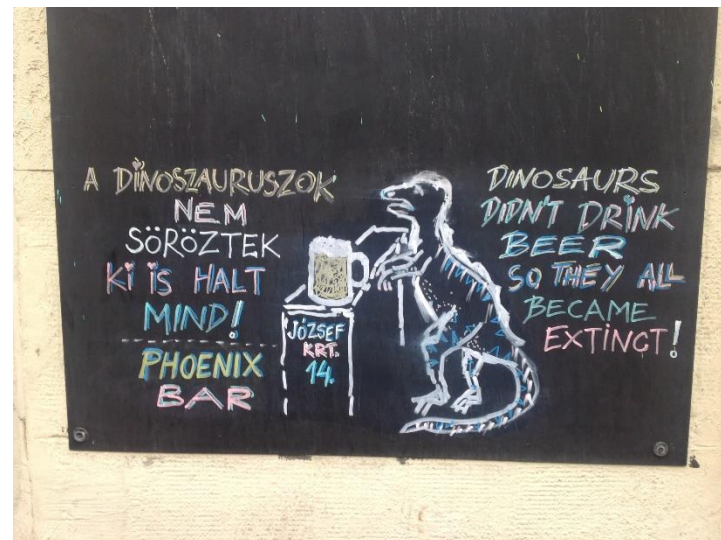 A DINOSZAURUSZOK
NEM
SÖRÖZTEK
Ki iS HALT
MIND!
PHOENIX
BAR
JÓZSEF
KRT.
14.
DINOSAURS
DIDN'T DRINK
BEER
SO THEY ALL
BECAME
EXTINCT!